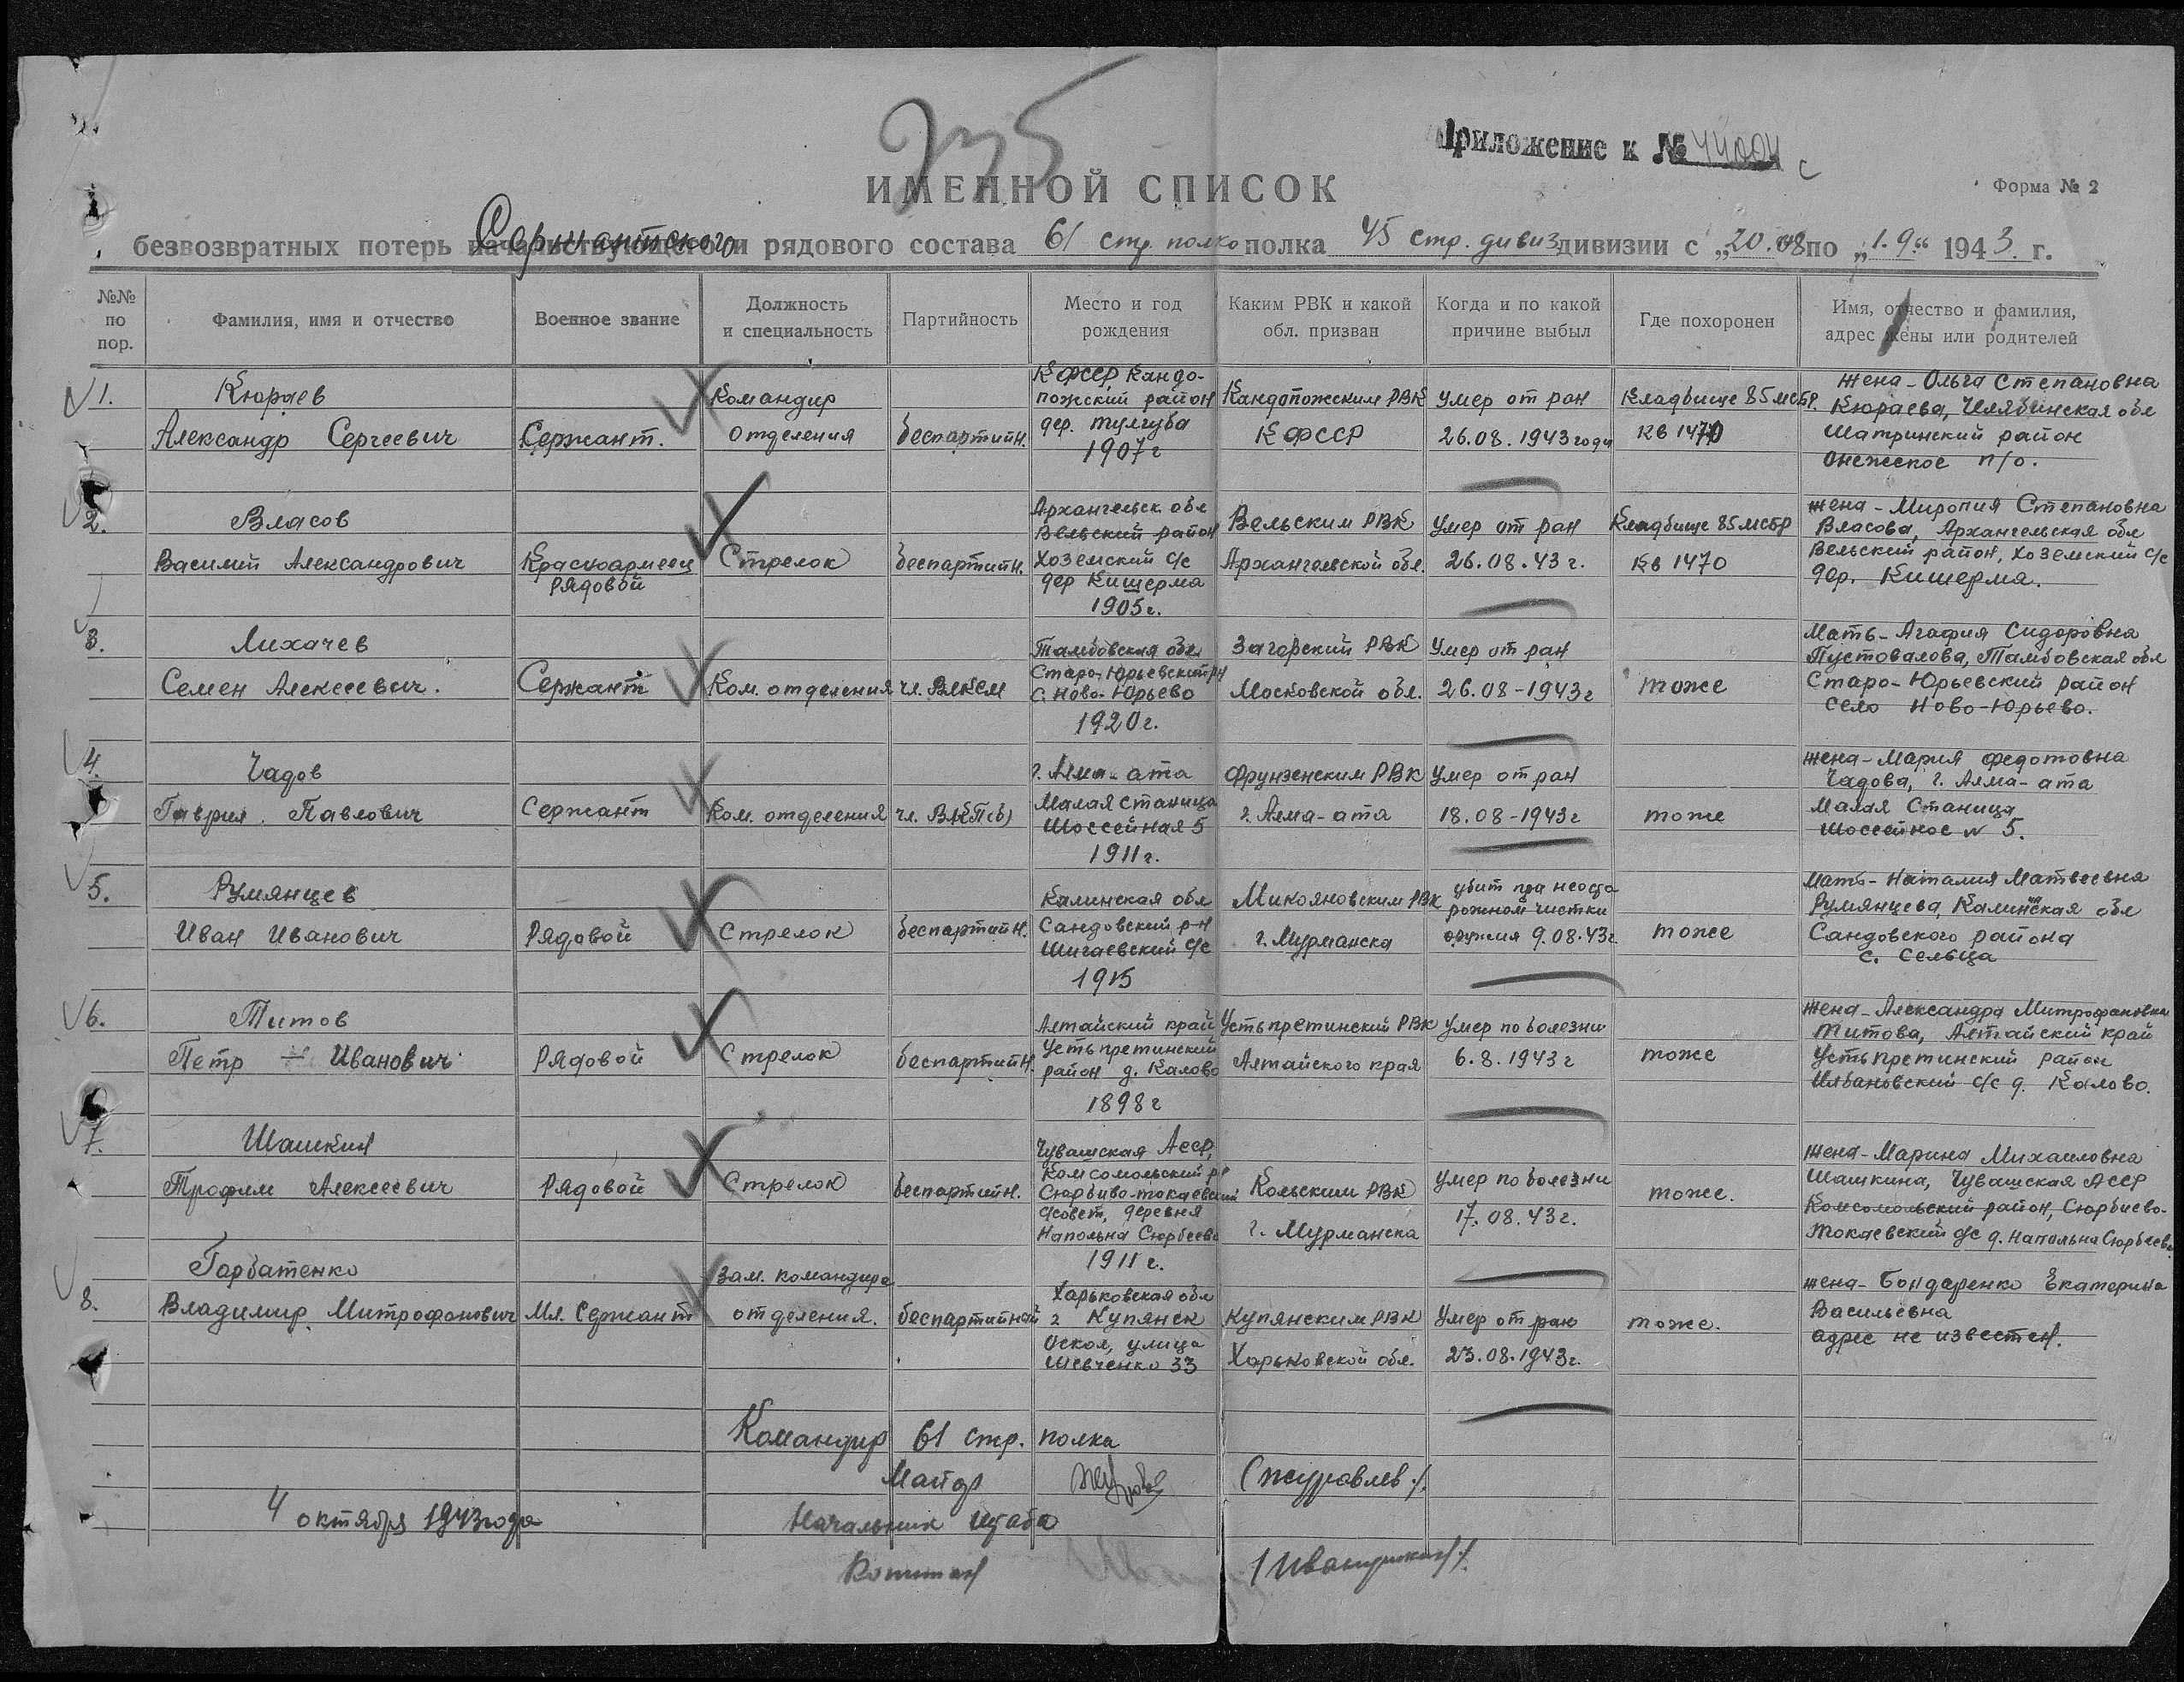 235
Приложение к № 44004 с
ИМЕННОЙ СПИСОК
Форма № 2
безвозвратных потерь начальствующего Сержантского и рядового состава 61 стр. полка полка 45 стр. дивиз дивизии с „20.08 по „1.9.“ 1943. г.
№№ по пор.
Фамилия, имя и отчество
Военное звание
Должность и специальность
Партийность
Место и год рождения
Каким РВК и какой обл. призван
Когда и по какой причине выбыл
Где похоронен
Имя, отчество и фамилия, адрес жены или родителей
1.
Кюраев
Александр Сергеевич
Сержант.
Командир
отделения
беспартийн.
КФССР, Кандо-
пожский район
дер. тулгуба
1907г
Кандопожским РВК
КФССР
умер от ран
26.08.1943года
Кладбище 85 мстр.
кв 1470
жена - Ольга Степановна
Кюраева, Челябинская обл
Шатринский район
Онежское п/о.
2.
Власов
Василий Александрович
Красноармеец
рядовой
Стрелок
беспартийн.
Архангельск. обл
Вельский район
Хоземский с/с
дер Кишерма
1905г.
Вельским РВК
Архангельской обл.
умер от ран
26.08.43г.
Кладбище 85 мсбр
кв 1470
жена - Миропия Степановна
Власова, Архангельская обл
Вельский район, Хоземский с/с
дер. Кишерма.
3.
Лихачев
Семен Алексеевич.
Сержант
Ком. отделения
чл. ВЛКСМ
Тамбовская обл
Старо-Юрьевский рн
с. Ново-Юрьево
1920г.
Загорский РВК
Московской обл.
Умер от ран
26.08-1943г
тоже
Мать - Агафия Сидоровна
Пустовалова, Тамбовская обл
Старо-Юрьевский район
село Ново-Юрьево.
4.
Чадов
Гаврил. Павлович
Сержант
Ком. отделения
чл. ВКП(б)
г. Алма-ата
Малая Станица
Шоссейная 5
1911г.
Фрунзенским РВК
г. Алма-ата
умер от ран
18.08-1943г
тоже
жена - Мария Федотовна
Чадова, г. Алма-ата
Малая Станица
Шоссейное № 5.
5.
Румянцев
Иван Иванович
Рядовой
Стрелок
беспартийн.
Калинская обл
Сандовский р-н
Шигаевский с/с
1915
Микояновским РВК
г. Мурманска
убит при неосто
рожном чистки
оружия 9.08.43г.
тоже
Мать - Наталия Матвеевна
Румянцева, Калининская обл
Сандовского района
с. Сельца
6.
Титов
Петр Иванович
Рядовой
Стрелок
беспартийн.
Алтайский край
Устьпретинский
район д. Калово
1898г
Устьпретинский РВК
Алтайского края
умер по болезни
6.8.1943г
тоже
жена - Александра Митрофановна
Титова, Алтайский край
Устьпретинский район
Илбановский с/с д. Калово.
7.
Шашкин
Трофим Алексеевич
Рядовой
Стрелок
беспартийн.
Чувашская Асср,
Комсомольский р-
Сюрбиво-токаевский
с/совет, деревня
Напольна Сюрбеево
1911г.
Кольским РВК
г. Мурманска
умер по болезни
17.08.43г.
тоже.
жена - Марина Михаиловна
Шашкина, Чувашская АССР
Комсомольский район, Сюрбиево-
токаевский с/с д. Напольна Сюрбеево
8.
Горбатенко
Владимир Митрофанович
Мл. Сержант
Зам. командира
отделения.
беспартийный
Харьковская обл
г Купянск
Оскол, улица
Шевченко 33
Купянским РВК
Харьковской обл.
Умер от ран
23.08.1943г.
тоже.
жена - Бондаренко Екатерина
Васильевна
адрес не известен.
Командир 61 стр. полка
Майор (Журавлев)
4 октября 1943года
Начальник штаба
Капитан